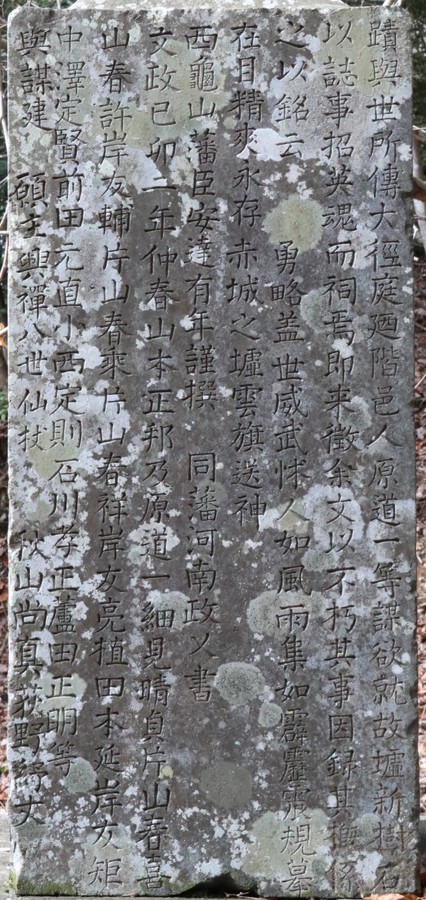 蹟與世所傳大徑庭廼階邑人原道一等謀欲就故墟新樹石
以誌事招英魂而祠焉即来徴余文以不朽其事因録其槩係
之以銘云　勇略盖世威武怵人如風雨集如霹靂震規墓
在目精爽永存赤城之墟雲旗送神
西龜山藩臣安達有年謹撰　同藩河南政乂書
文政己卯二年仲春山本正邦乃原道一細見晴貞片山春喜
山春許岸友輔片山春來片山春祥岸友亮植田本延岸友矩
中澤定賢前田元直小西定則石川孝正蘆田正明等
與謀建　願主興禪八世仙杖　秋山尚真荻野